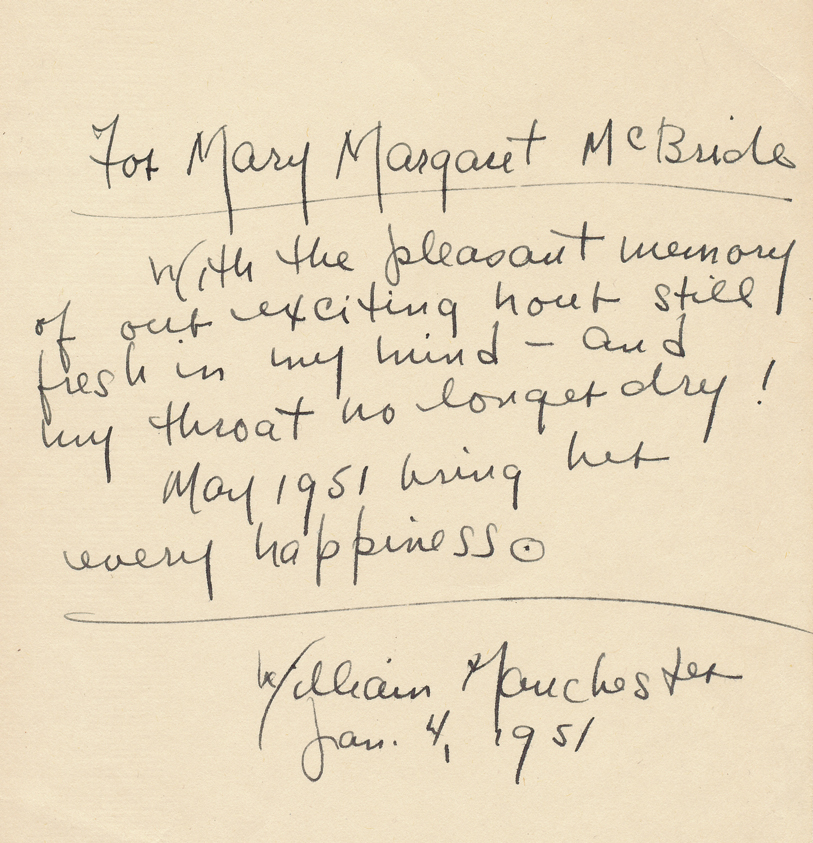 For Mary Margaret McBride
With the pleasant memory
of our exciting hour still
fresh in my mind – and
my throat no longer dry!
May 1951 bring her
every happiness.
William Manchester
Jan. 4, 1951